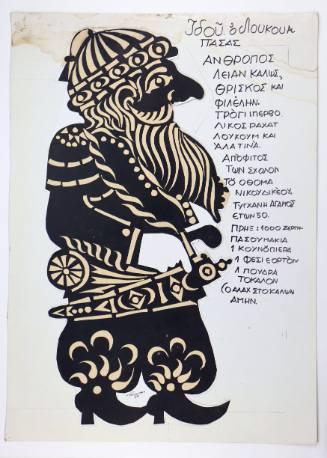 Ἰδού. ὁ Λουκουμ
ΠΑΣΑΣ
ΑΝΘΡΟΠΟΣ
ΛΕΙΑΝ ΚΑΛΩΣ,
ΘΡΙΣΚΟΣ ΚΑΙ
ΦΙΛΕΛΗΝ.
ΤΡΟΠ ΙΠΕΡΒΟ.
ΛΙΚΟΣ ΡΑΧΑΤ
ΛΟΥΚΟΥΜ ΚΑΙ
ΑΛΑΤΙΝΑ.
ΑΠΟΦΙΤΟΣ
ΤΩΝ ΣΧΟΛΟΝ
ΤΟ ΟΘΟΜΑ
ΝΙΚΟΥ
ΤΥΓΧΑΝΗ ΑΓΑΜΟΣ
ΕΤΩΝ 50.
1000
ΠΑΣΟΥΜΑΚΙΑ
1 ΚΟΥΝΟΠΙΕΡΑ
1 ΦΕΣΙ ΕΟΡΤΟΝ
1 ΠΟΥΔΡΑ
ΤΟΚΑΛΟΝ
Ο ΑΛΑΧ ΣΤΟ ΚΑΛΩΝ
ΑΜΗΝ.